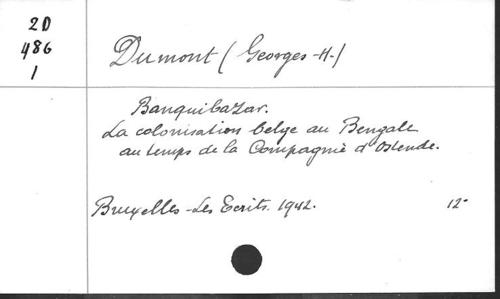 2D
486
1
Dumont (Georges-H.)
Banquibazar.
La colonisation belge au Bengale
au temps de la Compagnie d'Ostende.
Bruxelles - Les Ecrits. 1942.
12°